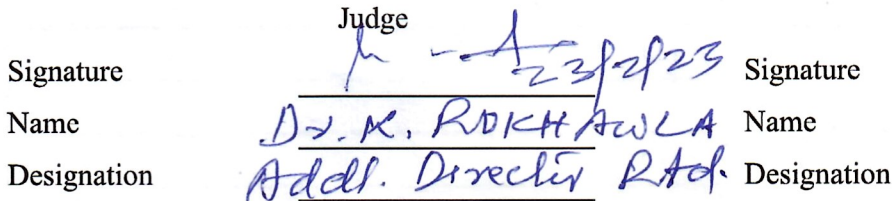 Judge
Signature 23/2/23 Signature
Name Dr. K. ROKHAWLA Name
Designation Addl. Director Rtd. Designation